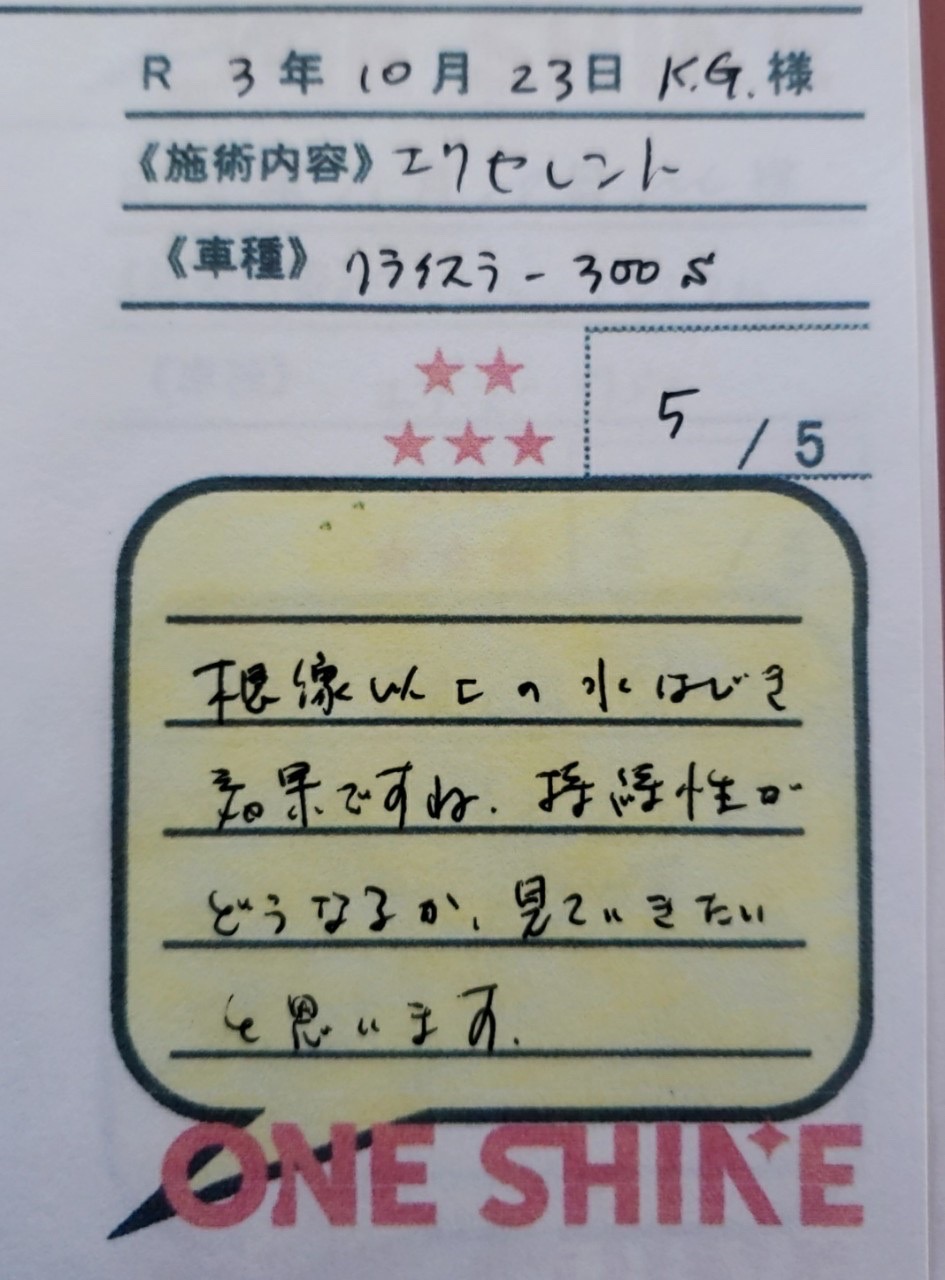 R 3年 10月 23日 K.G.様
《施術内容》エクセレント
《車種》クライスラー 300S
5 / 5
想像以上の水はじき
効果ですね。持続性が
どうなるか、見ていきたい
と思います。
ONE SHINE